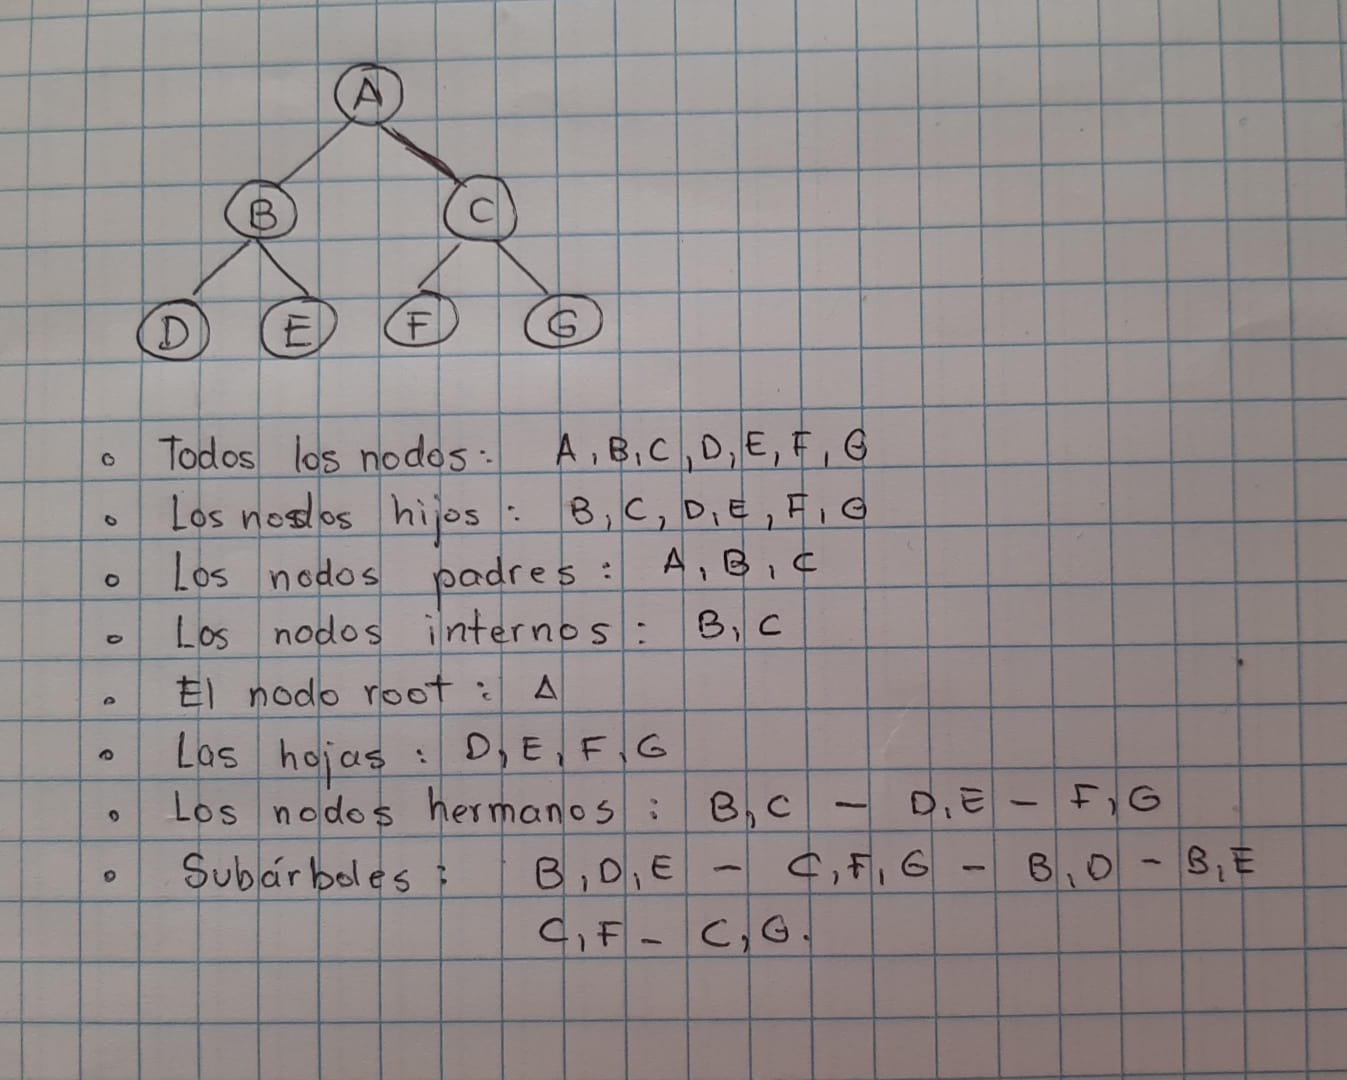 A
B C
D E F G
Todos los nodos: A, B, C, D, E, F, G
Los nodos hijos: B, C, D, E, F, G
Los nodos padres: A, B, C
Los nodos internos: B, C
El nodo root: A
Las hojas: D, E, F, G
Los nodos hermanos: B, C - D, E - F, G
Subárboles: B, D, E - C, F, G - B, D - B, E
C, F - C, G.